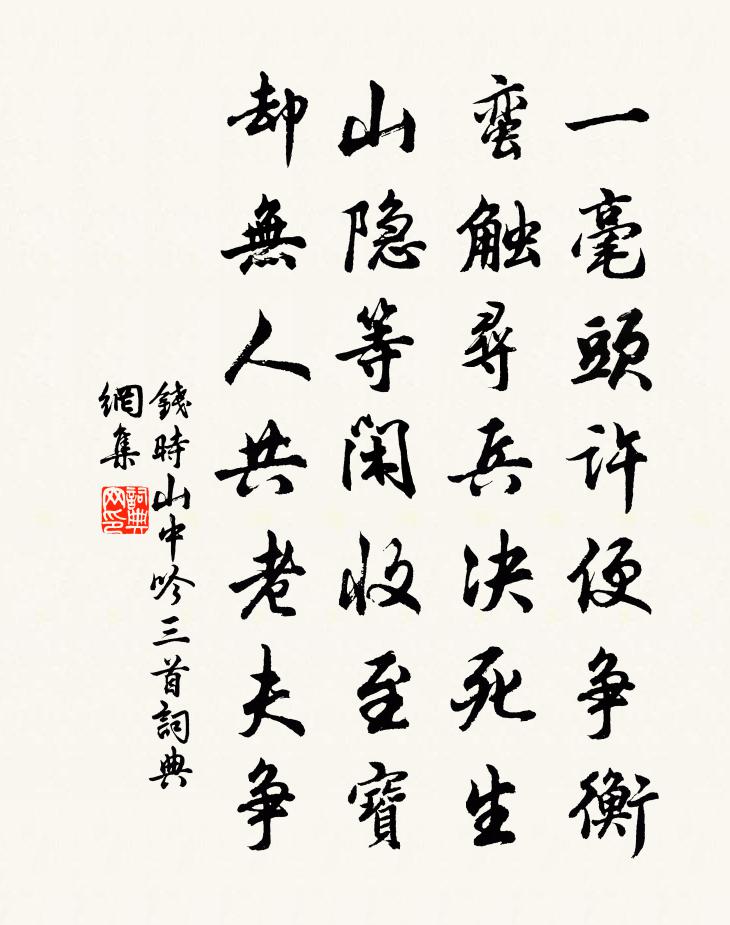 一毫頭許便争衡
蛮触尋兵决死生
山隐等閑收至寶
却無人共老夫争
錢時山中吟三首詞典
網集
詞典
网印